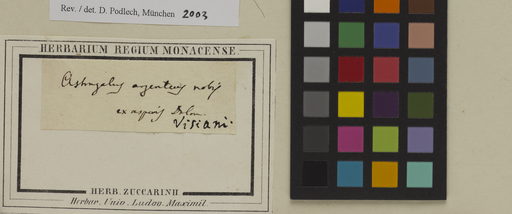 Rev. / det. D. Podlech, München 2003
HERBARIUM REGIUM MONACENSE
Astragalus argenteus nobis
ex asperis Dalm.
Visiani.
HERB. ZUCCARINII
Herbar. Univ. Ludov. Maximil.